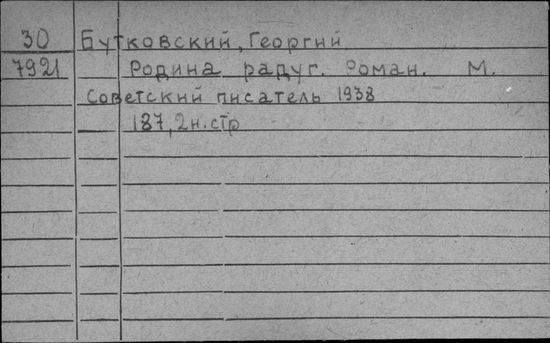 30 Бутковский, Георгий
7921 Родина радуг. Роман. М.
Советский писатель 1938
187, 2 н. стр